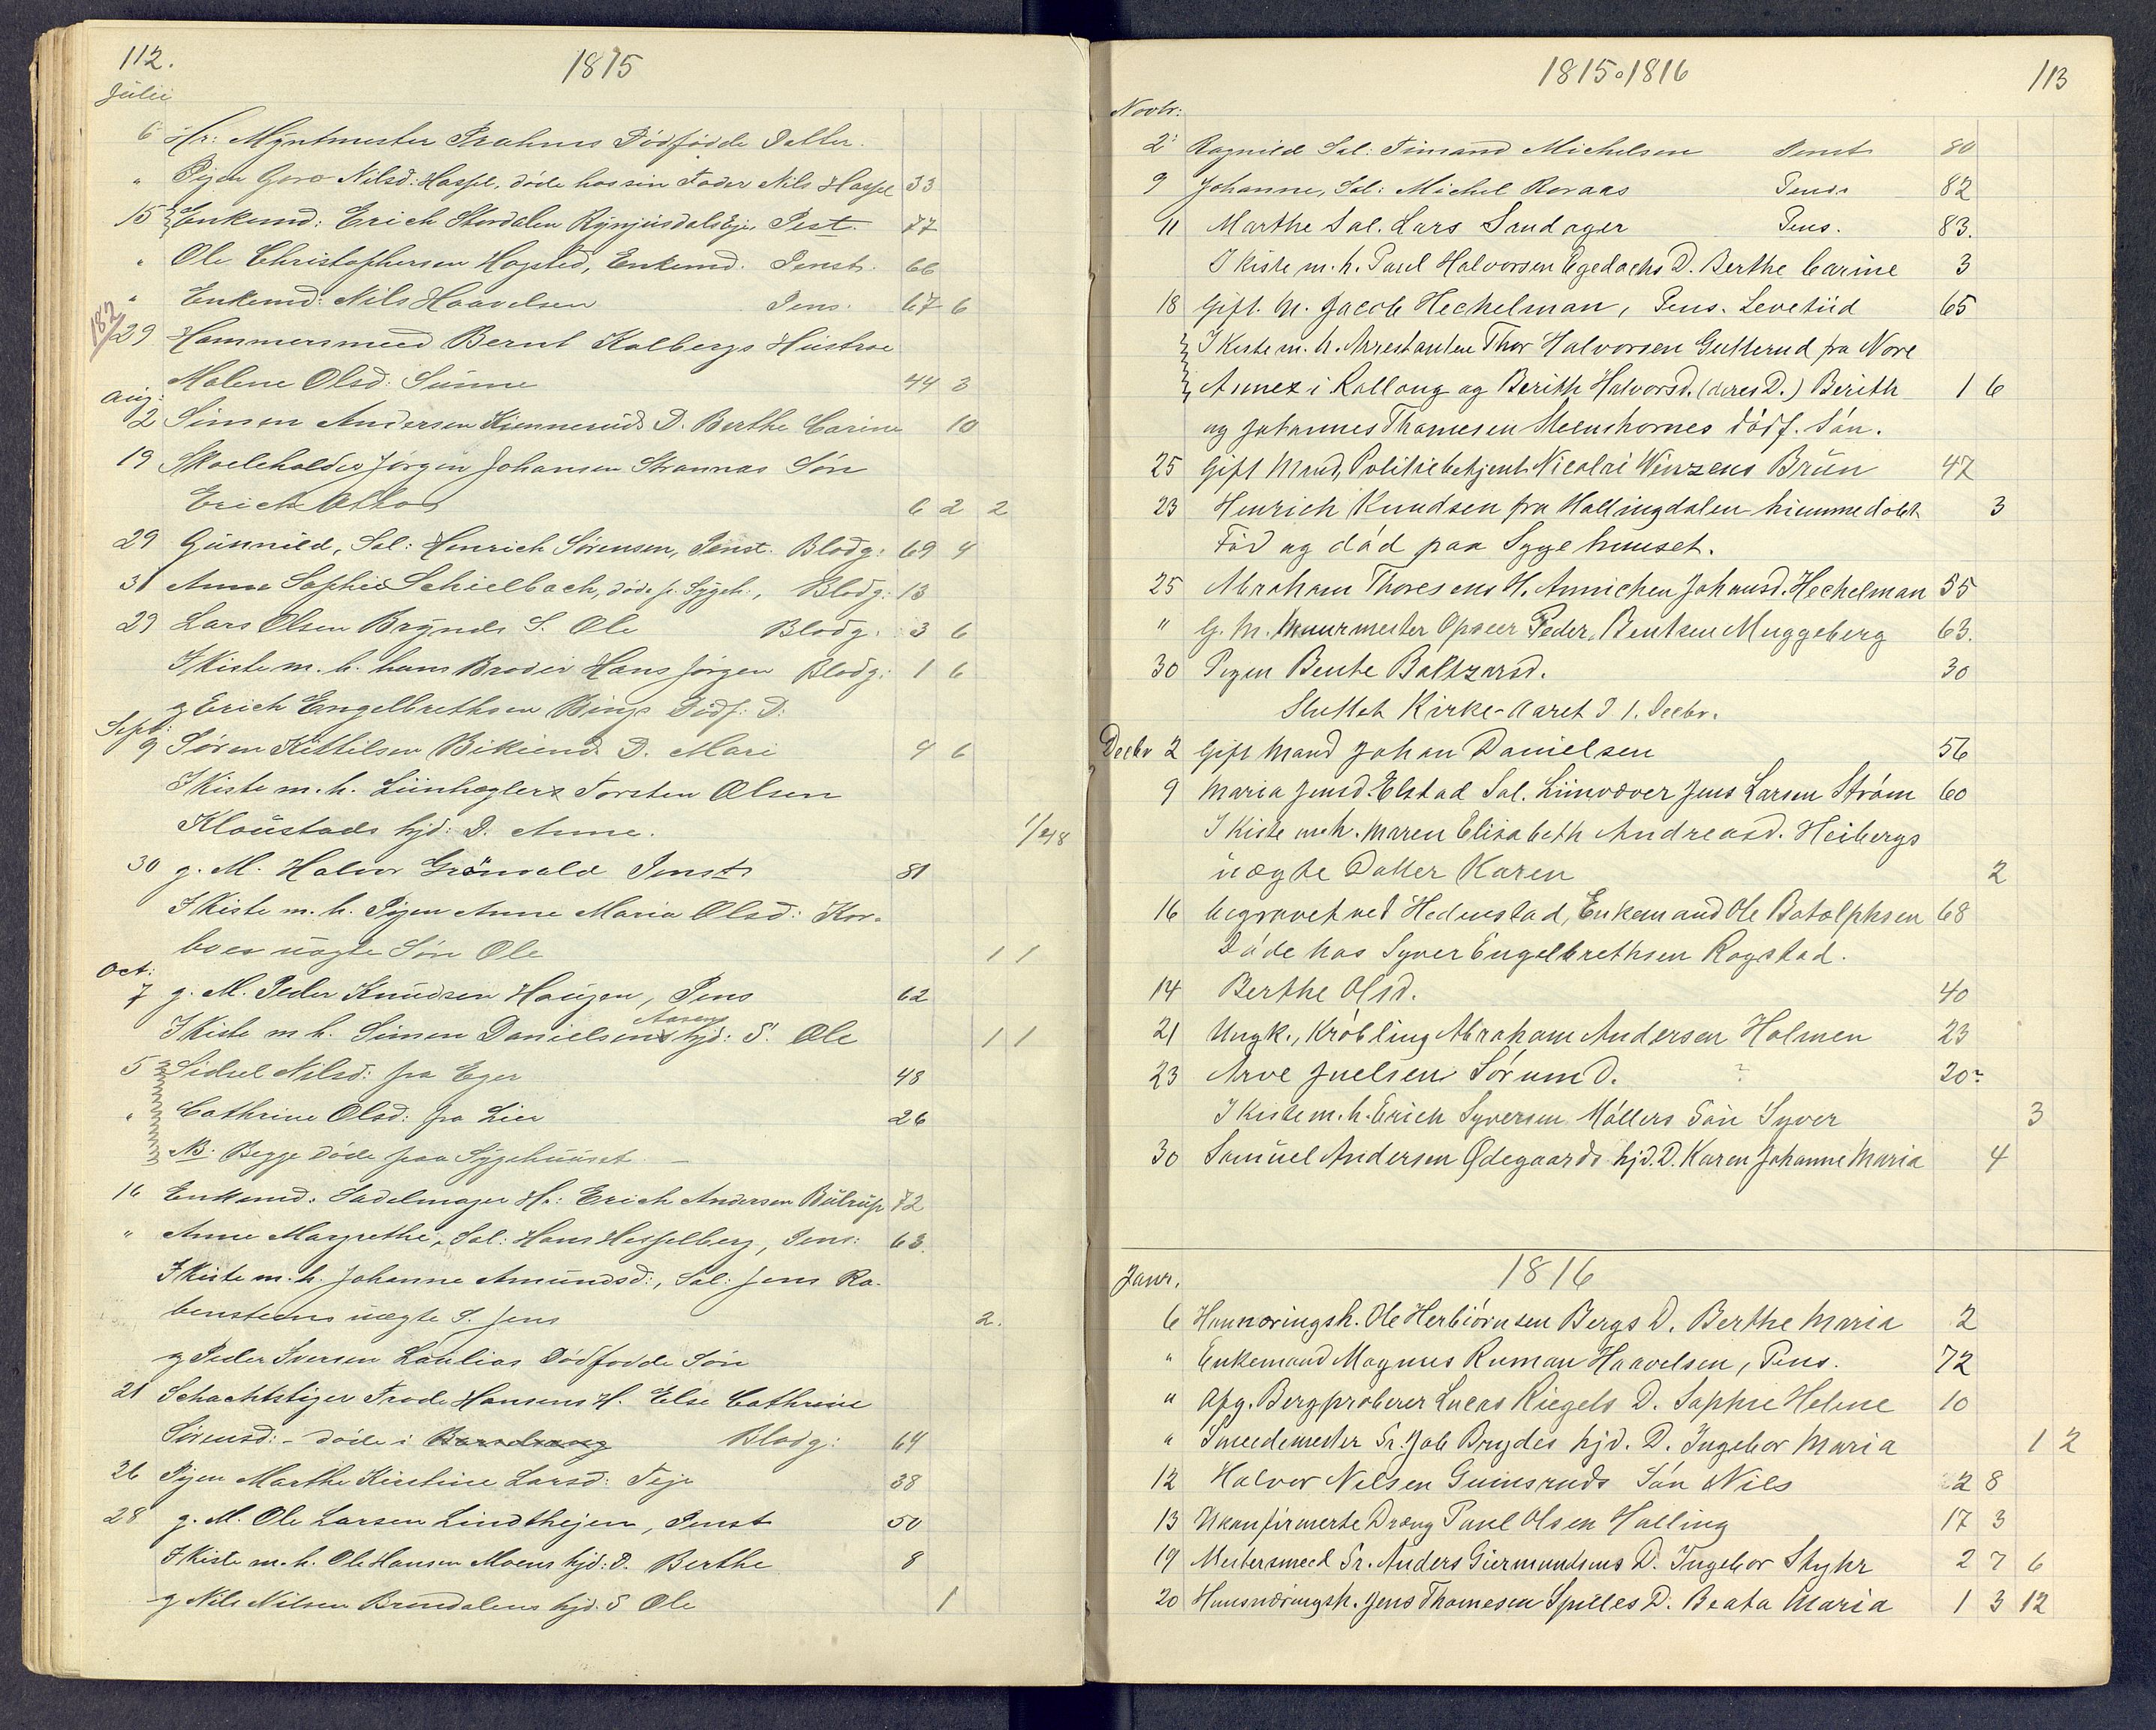 112.
1815
Julii
6 Hr: Myntmester Prahms Dödfödde Datter.
" Pigen Goro Nilsd: Hassel, döde hos sin Fader Nils Hassel 33
15 Enkemd: Erich Stordalen Pest. 77
" Ole Christophersen Hogsted, Enkemd. Penst. 66
" Enkemd: Nils Haavelsen Pens. 67 6
182
29 Hammersmed Bernt Kolbergs Hustroe
Malene Olsd: Sünne 44 3
Aug:
12 Simen Andersen Kiemneruds D. Berthe Carine 10
19 Skoeleholder Jörgen Johansen Strannas Sön
Erich 6 2 2
29 Günnild, Sal: Henrich Sörensen, Penst. Blodg: 69 4
31 Anne Sophie Schielbach, döde p. Sygeh:, Blodg: 13
29 Lars Olsen Brynds S. Ole Blodg. 3 6
I Kiste m. h. hans Broder Hans Jörgen Blodg: 1 6
og Erich Engelbrethsen Bings Dödf: D:
Sept:
9 Sören Kittilsen Bikiends D. Mari 4 6
I Kiste m. h. Liinheglers Torsten Olsen
Kloüstads hjd: D. Anne. 1/248
30 g. M. Halvor Grönvald Penst 81
I Kiste m. h. Pigen Anne Maria Olsd: Kor-
boes uægte Sön Ole 1 1
Oct:
7 g. M. Peder Knudsen Haugen, Pens 62
Aasens
I Kiste m h. Simen Danielsens hjd: S. Ole 1 1
5 Sidsel Nilsd: fra Eger 48
" Cathrine Olsd: fra Lier 26
NB. Begge döde paa Sygehuuset.
16 Enkemd. Sadelmager Hr: Erich Andersen Bülrup 72
" Anne Margrethe, Sal: Hans Hesselberg, Pens: 63.
I Kiste m. h. Johanne Amundsd:, Sal: Jens Ra-
bensteens uægte S. Jens 2.
og Peder Iversen Laulias Dödfödde Sön
21 Schachtstiger Frode Hansens H. Else Cathrine
Sörensd: - döde i Barselseng Blodg: 64
26 Pigen Marthe Kirstine Larsd: Teje 38
28 g. M. Ole Larsen Lindthejen, Penst 50
I Kiste m. h. Ole Hansen Moens hjd: D. Berthe 8
og Nils Nilsen Brendalens hjd. S Ole 1
1815 o 1816
113
Novbr:
2 Ragnild Sal: Timand Michelsen Penst 80
9 Johanne, Sal: Michel Roraas Pens 82
11 Marthe Sal. Lars Sandager Pens. 83.
I Kiste m. h. Paul Halvorsen Egedachs D. Berthe Carine 3
18 Gift. M. Jacob Hechelman, Pens. Levetiid 65
I Kiste m. h. Arrestanten Thor Halvorsen Gutterud fra Nore
Annex i Rollaug og Berith Halvorsd. (deres D.) Berith 1 6
og Johannes Thamesen Steenshornes dödf. Sön.
25 Gift Mand, Politiebetjent Nicolai Winzens Brün 47
23 Henrich Knudsen fra Hallingdalen hiemmedöbt 3
Föd og död paa Sygehuuset.
25 Abraham Thoresens H. Annichen Johansd. Hechelman 55
" G. M. Muurmester Opseer Peder Bentzen Muggeberg 63.
30 Pigen Bente Baltzarsd. 30
Sluttet Kirke-Aaret D 1. Decbr.
Decbr 2 Gift Mand Johan Danielsen 56
9 Maria Jensd. Elstad Sal. Liinvæver Jens Larsen Ström 60
I Kiste m.h. Maren Elisabeth Andreasd. Heibergs
uægte Datter Karen 2
16 begravet ved Hedenstad, Enkemand Ole Batolphsen 68
Döde hos Syver Engelbrethsen Rogstad.
14 Berthe Olsd. 40
21 Ungk., Kröbling Abraham Andersen Holmen 23
23 Arve Juelsen Sörum D. ? 20?
I Kiste m. h. Erich Syversen Möllers Sön Syver 3
30 Samuel Andersen Ödegaards hjd. D. Karen Johanne Maria 4
1816
Janr.
6 Huusnæringsh. Ole Herbiörnsen Bergs D. Berthe Maria 2
" Enkemand Magnus Ruman Haavelsen, Pens. 72
" Afg. Bergproberer Lucas Riegels D. Sophie Helene 10
" Smedemester Sr. Job Brydes hjd. D. Ingebor Maria 1 2
12 Halvor Nelsen Guinsruds Sön Nils 2 8
13 Ukonfirmerte Dreng Paul Olsen Halling 17 3
19 Mestersmed Sr. Anders Giermundsens D. Ingebor Styhr 2 7 6
20 Huusnæringsh. Jens Thomesen Spilles D. Beata Maria 1 3 12